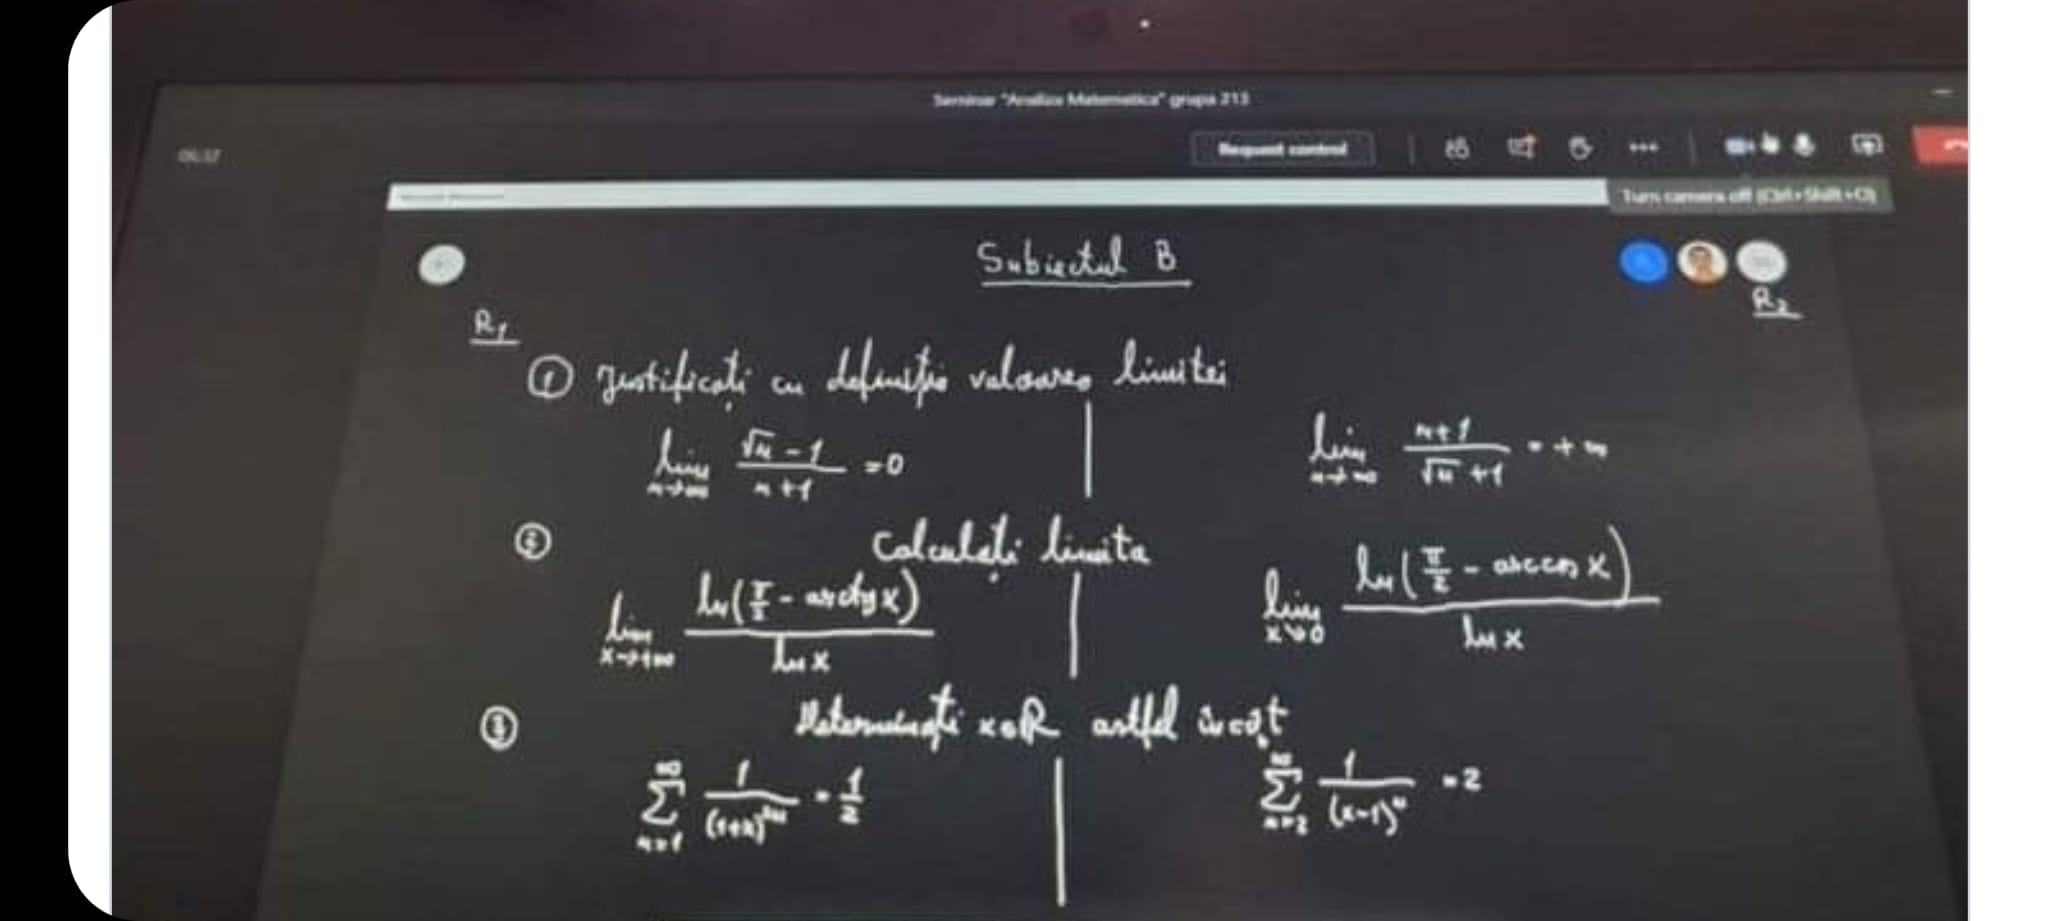 Seminar "Analiza Matematica" grupa 213
06:37
Request control
Turn camera off (Ctrl+Shift+O)
Subiectul B
R₁
R₂
① Justificați cu definiția valoarea limitei
lim n→∞ (√n - 1)/(n+1) = 0 | lim n→∞ (n+1)/(√n + 1) = +∞
② Calculați limita
lim x→+∞ ln(π/2 - arctg x)/ln x | lim x↘0 ln(π/2 - arccos x)/ln x
③ Determinați x∈R astfel încât
∞ Σ n=1 1/(1+x)³ⁿ = 1/2 | ∞ Σ n=2 1/(x-1)ⁿ = 2